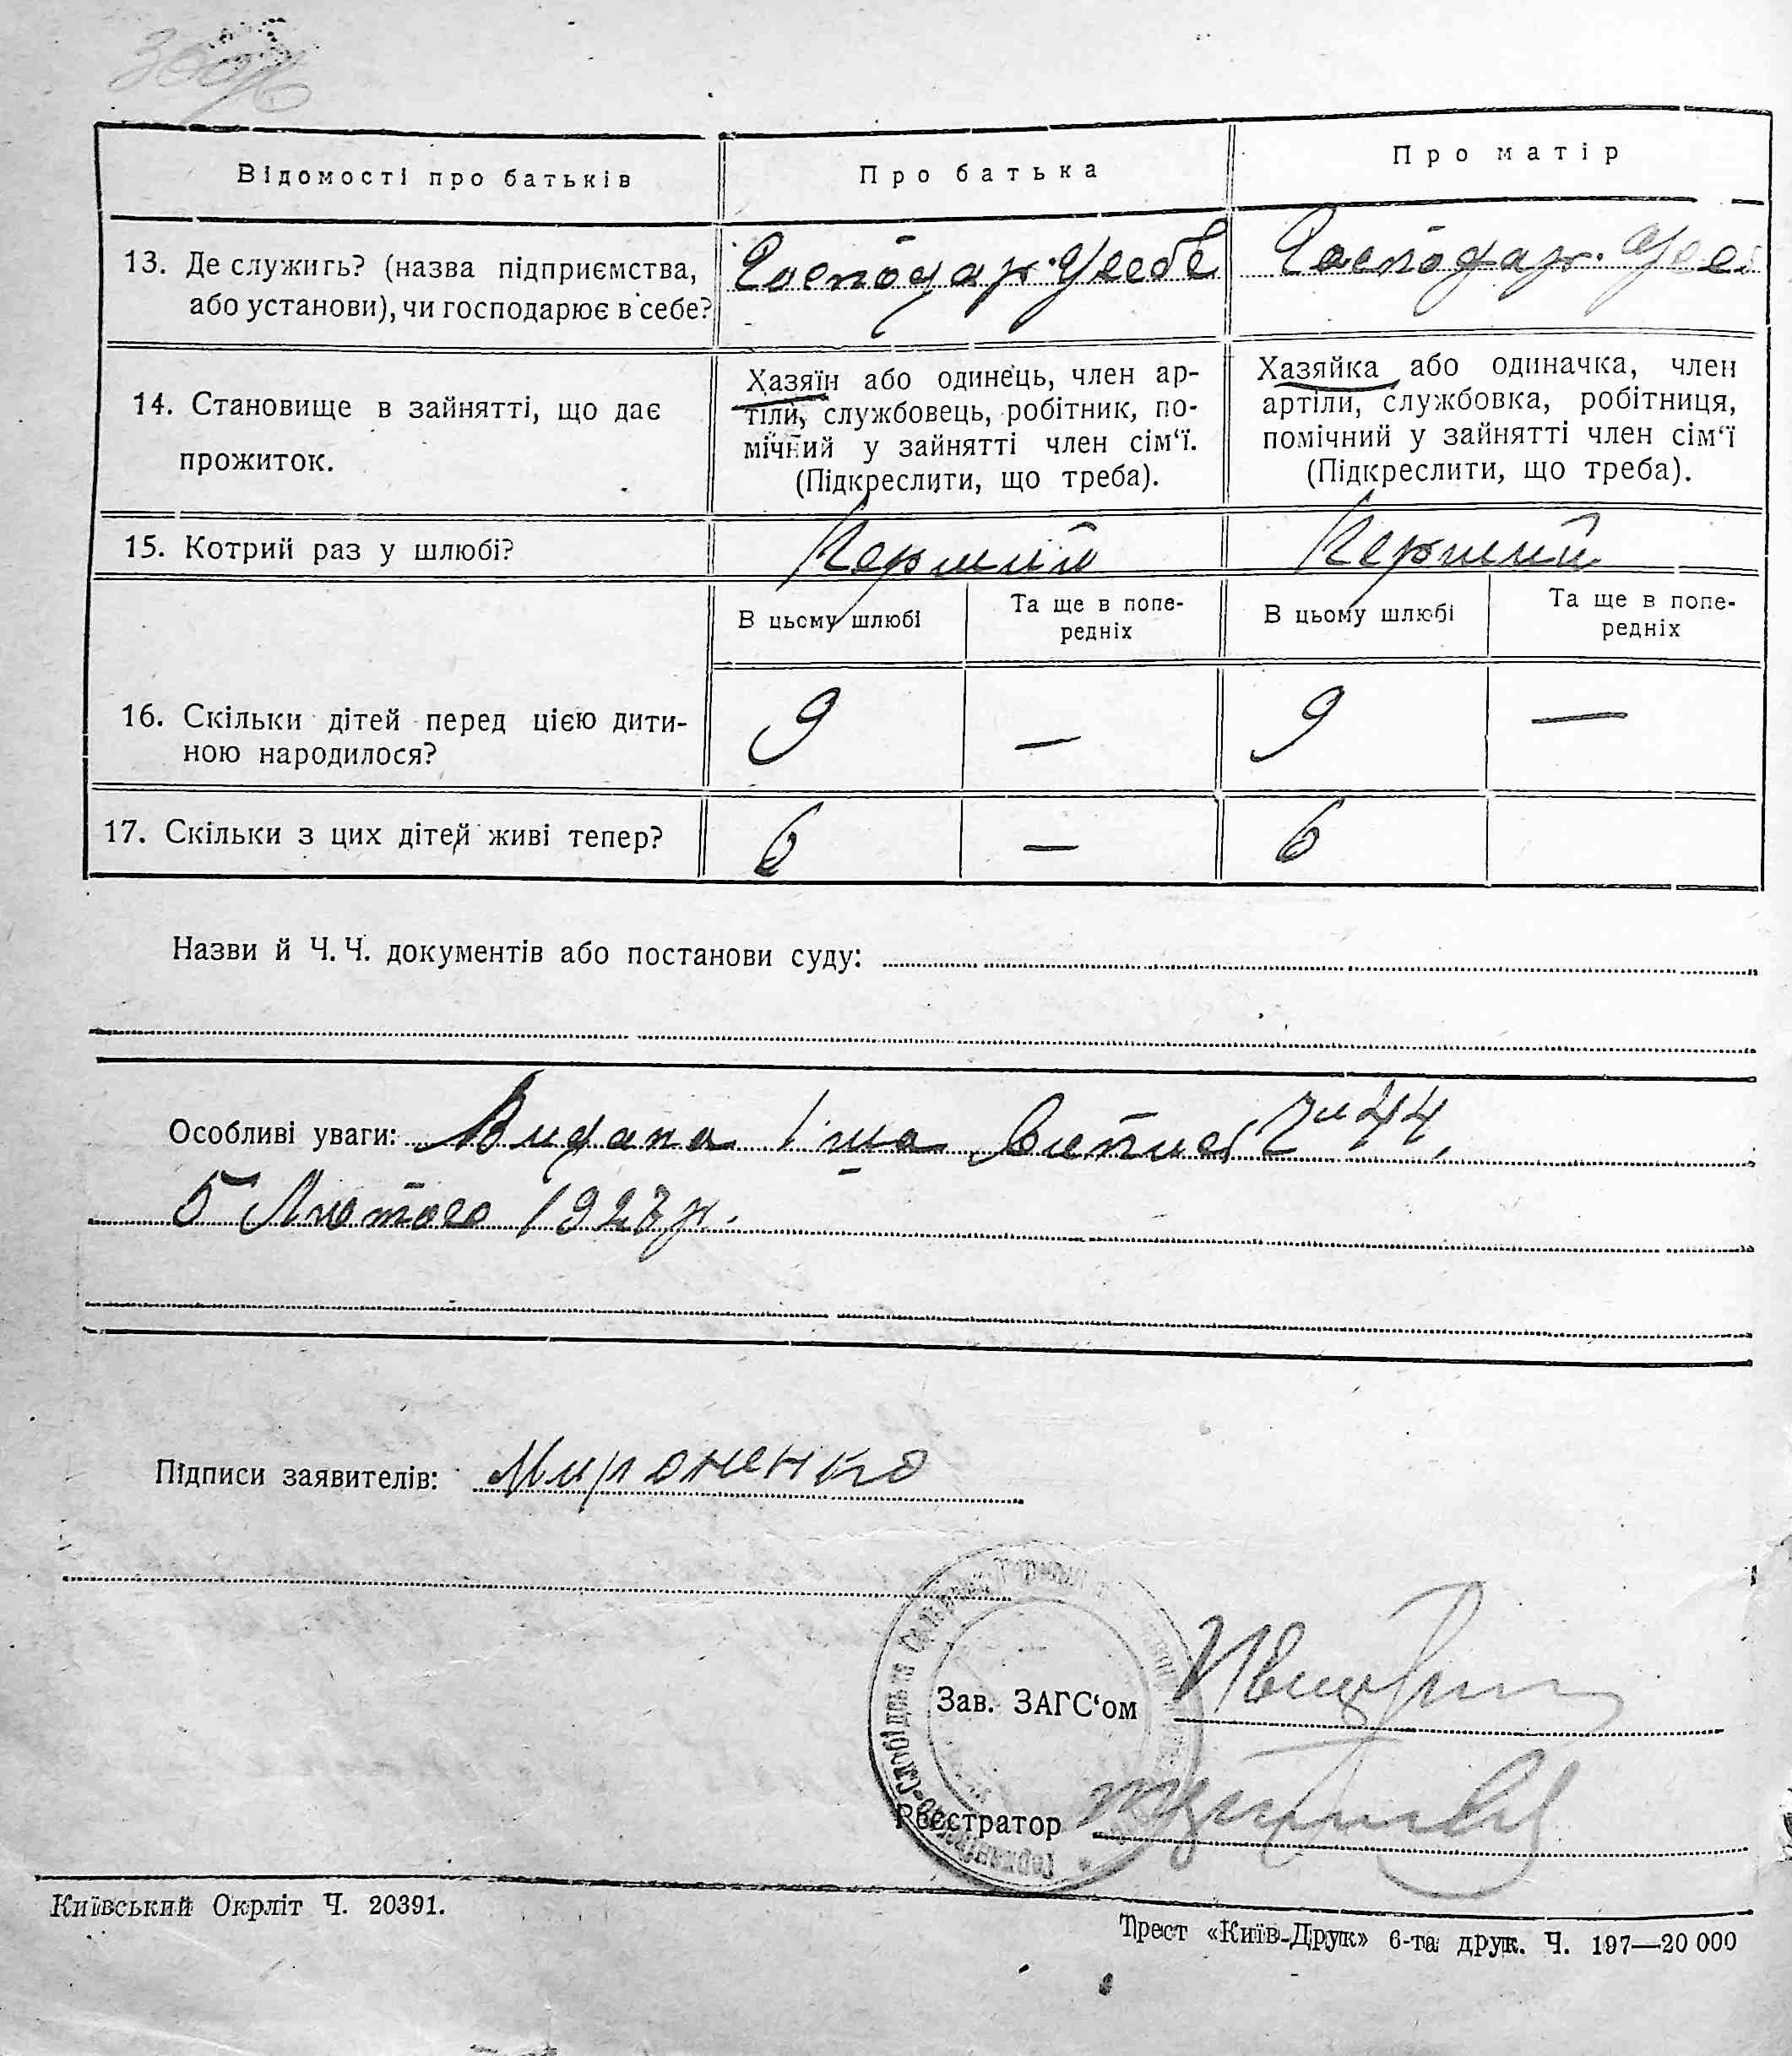 Відомості про батьків
Про батька
Про матір
13. Де служить? (назва підприємства,
або установи), чи господарює в себе?
Господар. у себе
Господар. у себ
14. Становище в зайнятті, що дає
прожиток.
Хазяїн або одинець, член ар-
тіли, службовець, робітник, по-
мічний у зайнятті член сім‘ї.
(Підкреслити, що треба).
Хазяйка або одиначка, член
артіли, службовка, робітниця,
помічний у зайнятті член сім‘ї
(Підкреслити, що треба).
15. Котрий раз у шлюбі?
Перший
Перший
В цьому шлюбі
Та ще в попе-
редніх
В цьому шлюбі
Та ще в попе-
редніх
16. Скільки дітей перед цією дити-
ною народилося?
9 — 9 —
17. Скільки з цих дітей живі тепер?
6 — 6
Назви й Ч. Ч. документів або постанови суду:
Особливі уваги: Видана 1 ша Витпись 44,
5 Лютого 1927 р.
Підписи заявителів: Мироненко
Зав. ЗАГС‘ом
Реєстратор
Київський Окрліт Ч. 20391.
Трест «Київ-Друк» 6-та друк. Ч. 197—20 000